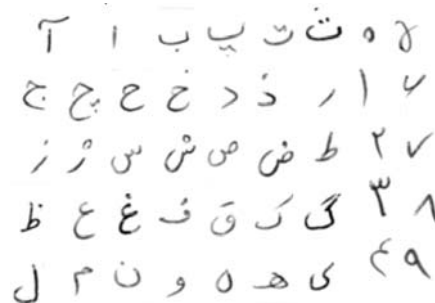 آ ا ب پ ت ث ۰ ۵
ج چ ح خ د ذ ر ۱ ۶
ز ژ س ش ص ض ط ۲ ۷
ظ ع غ ف ق ک گ ۳ ۸
ل م ن و ه هـ ی ۴ ۹